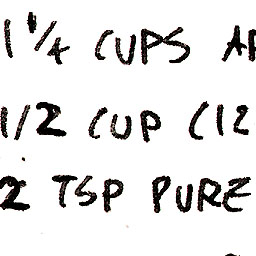 1 1/4 CUPS
1/2 CUP (12
2 TSP PURE